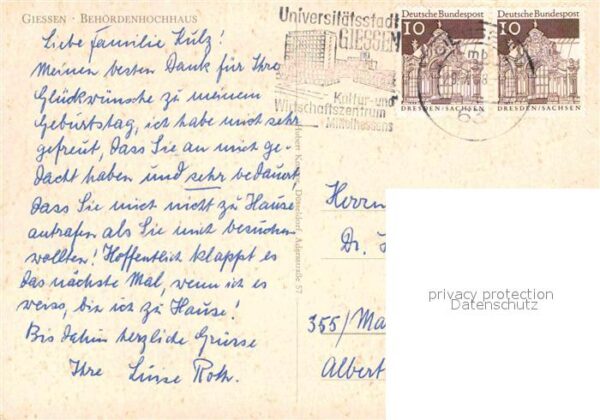 GIESSEN · BEHÖRDENHOCHHAUS
Liebe Familie Kulz!
Meinen besten Dank für Ihre
Glückwünsche zu meinem
Geburtstag, ich habe mich sehr
gefreut, dass Sie an mich ge-
dacht haben und sehr bedauert,
dass Sie mich nicht zu Hause
antrafen als Sie mich besuchen
wollten! Hoffentlich klappt es
das nächste Mal, wenn ich es
weiss, bin ich zu Hause!
Bis dahin herzliche Grüsse
Ihre Luise Roth.
Universitätsstadt
GIESSEN
Kultur-und
Wirtschaftszentrum
Mittelhessens
Deutsche Bundespost
10
DRESDEN/SACHSEN
Deutsche Bundespost
10
DRESDEN/SACHSEN
63
Düsseldorf, Adersstraße 57
Herrn
Dr.
355/Ma
Albert
privacy protection
Datenschutz